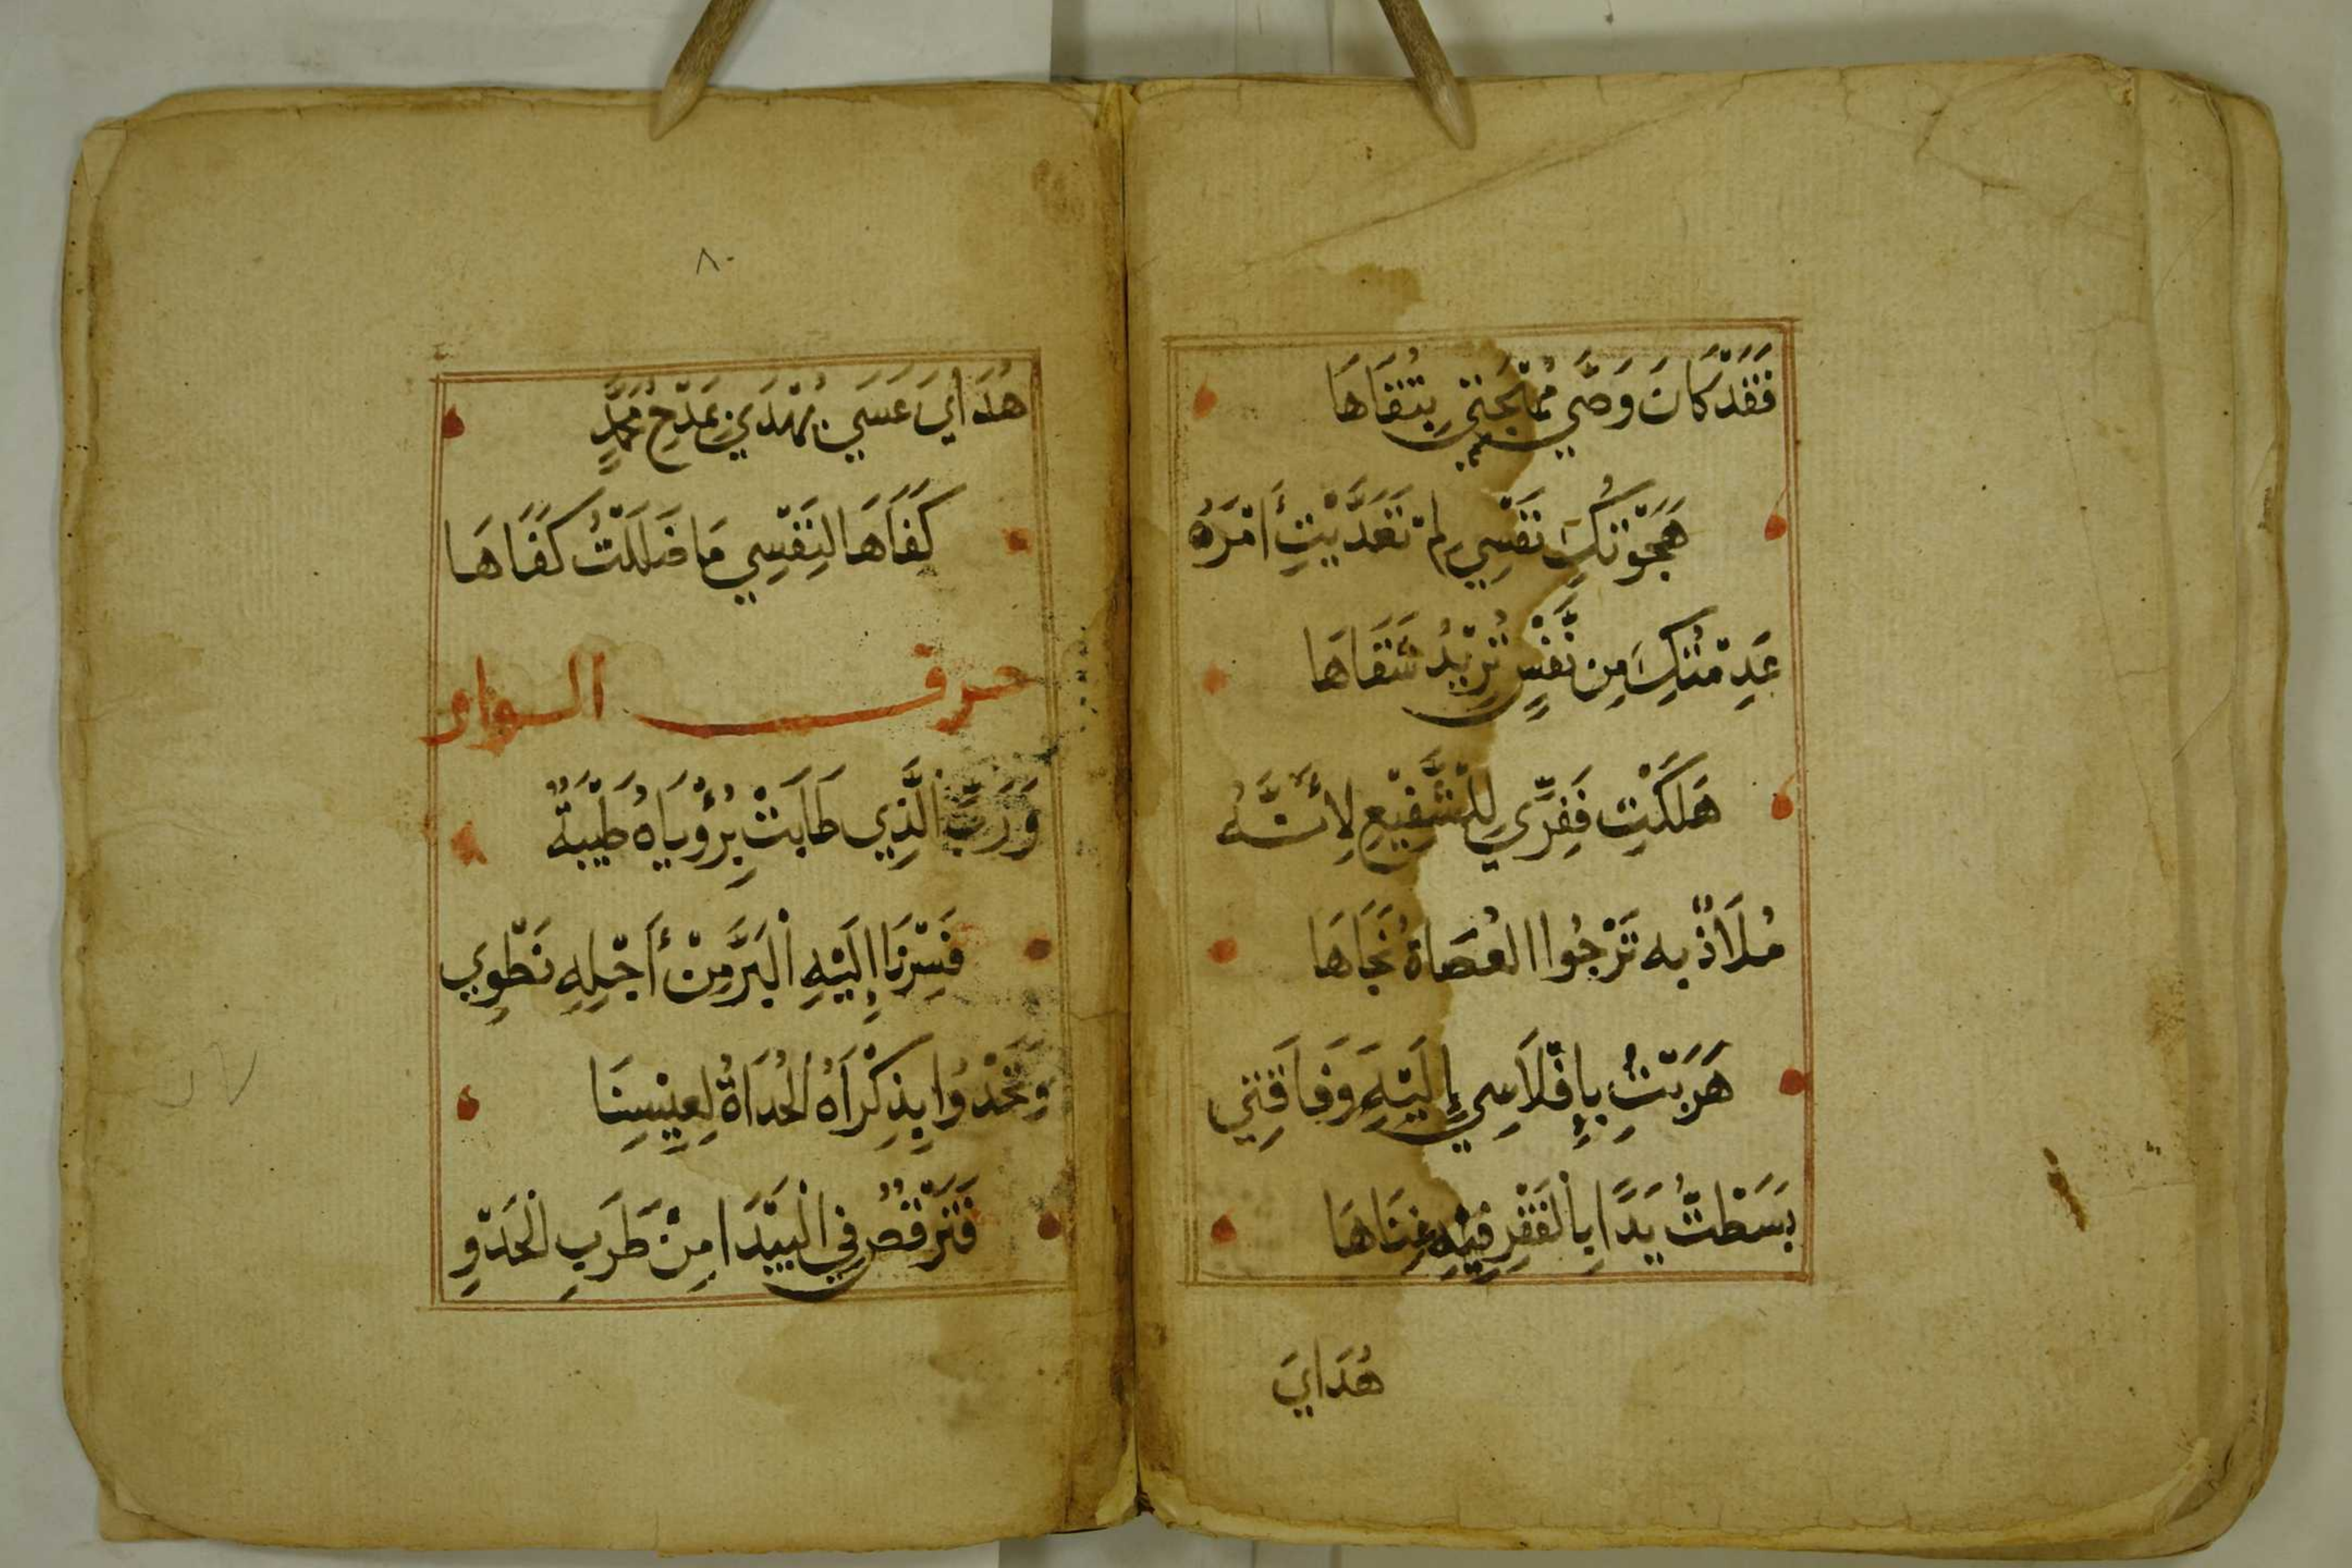 فَقَدْ كَانَ وَصَّي مُهْجَتِي بِتُقَاهَا
هَجَوْتُكِ نَفْسِي لِمْ تَعَدَّيْتِ أَمْرَهُ
عَدِمْتُكِ مِن نَّفْسٍ تُرِيْدُ شَقَاهَا
هَلَكْتِ فَفِرِّي لِلشَّفِيْعِ لِأَنَّهُ
مُلَاذٌ بِهِ تَرْجُوا الْعُصَاةُ نَجَاهَا
هَرَبْتُ بِإِفْلَاسِي إِلَيْهِ وَفَاقَتِي
بَسَطْتُ يَدًا بِالْفَقْرِ فِيْهِ غِنَاهَا
هُدَايَ
٨٠
هُدَايَ عَسَي يُهْدَي بِمَدْحِ مُحَمَّدٍ
كَفَاهَا لِنَفْسِي مَا ضَلَلْتُ كَفَاهَا
حرف الواو
وَرَبِّ الَّذِي طَابَتْ بِرُؤْيَاهُ طَيْبَةٌ
فَسِرْنَا إِلَيْهِ الْبَرَّ مِنْ أَجْلِهِ نَطْوِي
وَتَحْدُوا بِذِكْرَاهُ الْحُدَاةُ لِعِيْسِنَا
فَتَرْقُصُ فِي الْبَيْدَا مِنْ طَرَبِ الْحَدْوِ